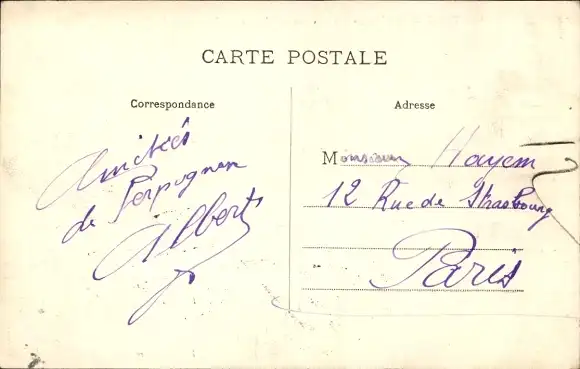 CARTE POSTALE
Correspondance
Amitiés
de Perpignan
Albert
Adresse
Monsieur Hayem
12 Rue de Strasbourg
Paris